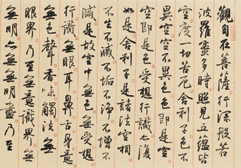 觀自在菩薩行深般若
波羅蜜多時照見五蘊皆
空度一切苦厄舍利子色不
異空空不異色色即是空
空即是色受想行識亦復
如是舍利子是諸法空相
不生不滅不垢不淨不增不
減是故空中無色無受想
行識無眼耳鼻舌身意
無色聲香味觸法無
眼界乃至無意識界無
無明亦無無明盡乃至